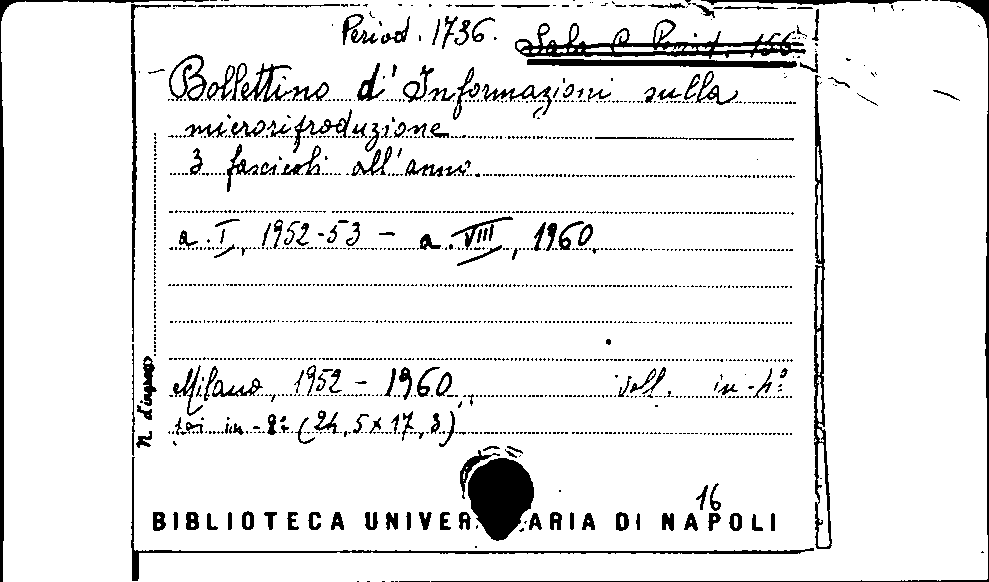 Period. 1736. Sala C Period. 156
Bollettino d'Informazioni sulla
microriproduzione
3 fascicoli all'anno.
a. I, 1952-53 - a. VIII, 1960.
Milano, 1952 - 1960, voll. in-4º
poi in-8º (24,5x17,3)
N. d'ingresso
16
BIBLIOTECA UNIVER ARIA DI NAPOLI